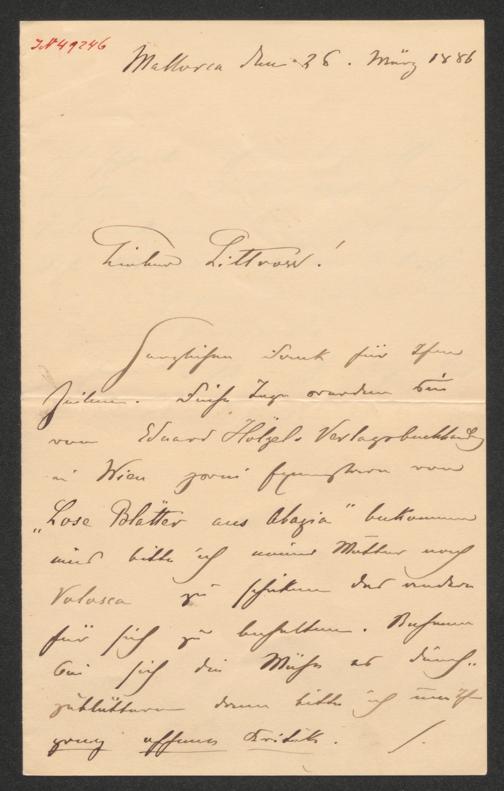 JN 49246
Mallorca den 26. März 1886
Lieber Littrow!
Herzlichen Dank für Ihre
Zeilen. Diese Tage werden Sie
von Eduard Hölzels Verlagsbuchhandlg
in Wien zwei Exemplare von
„Lose Blätter aus Abazia" bekommen
eines bitte ich meiner Mutter nach
Volosca zu schicken das andere
für sich zu behalten. Nehmen
Sie sich die Mühe es durch-
zublättern dann bitte ich um Ihre
ganz offene Kritik. /.